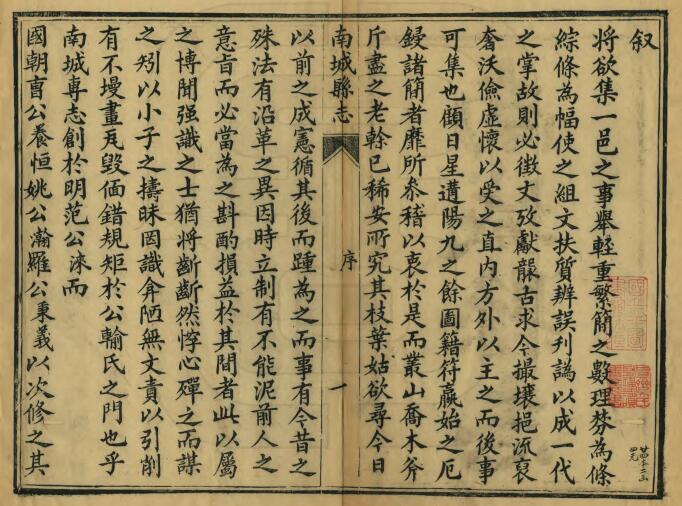 叙
將欲集一邑之事舉輕重繁簡之數理棼為條
綜條為幅使之組文扶質辨誤刊譌以成一代
之掌故則必徵文攷獻䚻古求今撮壤挹流裒
奢沃儉虛懷以受之直內方外以主之而後事
可集也顧日星遘陽九之餘圖籍符嬴始之厄
鋟諸簡者靡所叅稽以衷於是而叢山喬木斧
斤盡之老榦已稀安所究其枝葉姑欲尋今日
南城縣志
序
一
以前之成憲循其後而踵為之而事有今昔之
殊法有沿革之異因時立制有不能泥前人之
意旨而必當為之斟酌損益於其間者此以屬
之博聞强識之士猶將斷斷然悙心殫之而謀
之矧以小子之擣昧囡識弇陋無文責以引削
有不墁畫瓦毀偭錯規矩於公輸氏之門也乎
南城專志創於明范公淶而
國朝曺公養恒姚公瀚羅公秉義以次修之其